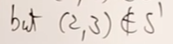 but (2,3) ∉ S'